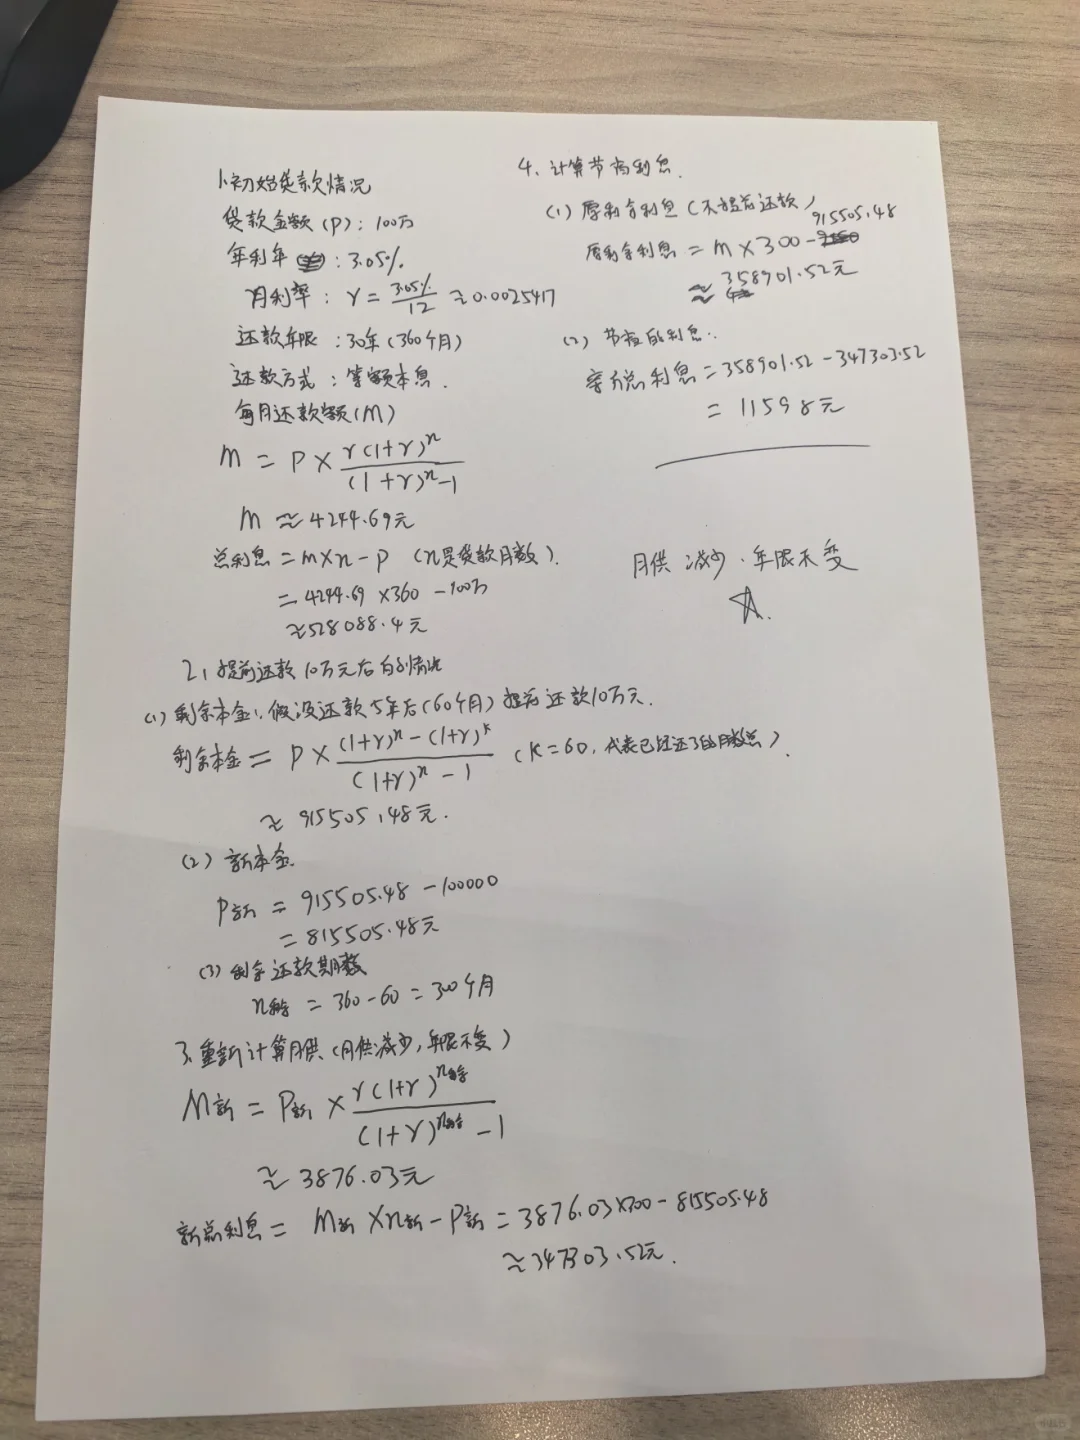 1、初始贷款情况
贷款金额(P): 100万
年利率: 3.05%
月利率: r = 3.05%/12 ≈0.0025417
还款年限: 30年(360个月)
还款方式: 等额本息.
每月还款额(M)
M = P × r(1+r)^n/(1+r)^n-1
M ≈ 4244.69元
总利息 = m×n-P (n是贷款月数)
= 4244.69 ×360 -100万
≈528088.4元
2、提前还款10万元后的情况
(1) 剩余本金: 假设还款5年后(60个月)提前还款10万元.
剩余本金 = P× (1+r)^n-(1+r)^k/(1+r)^n-1 (k=60, 代表已经还了的月数).
≈ 915505.48元.
(2) 新本金
P新 = 915505.48 -100000
= 815505.48元
(3) 剩余还款期数
n剩余 = 360-60 = 300个月
3、重新计算月供(月供减少,年限不变)
M新 = P新 × r(1+r)^n剩余/(1+r)^n剩余-1
≈ 3876.03元
新总利息 = M新 ×n新-P新 = 3876.03×300-815505.48
≈347303.52元.
4、计算节省利息.
(1) 原剩余利息(不提前还款)
原剩余利息 = M×300-915505.48
≈ 358901.52元
(2) 节省的利息.
节省总利息=358901.52-347303.52
= 11598元
月供减少.年限不变